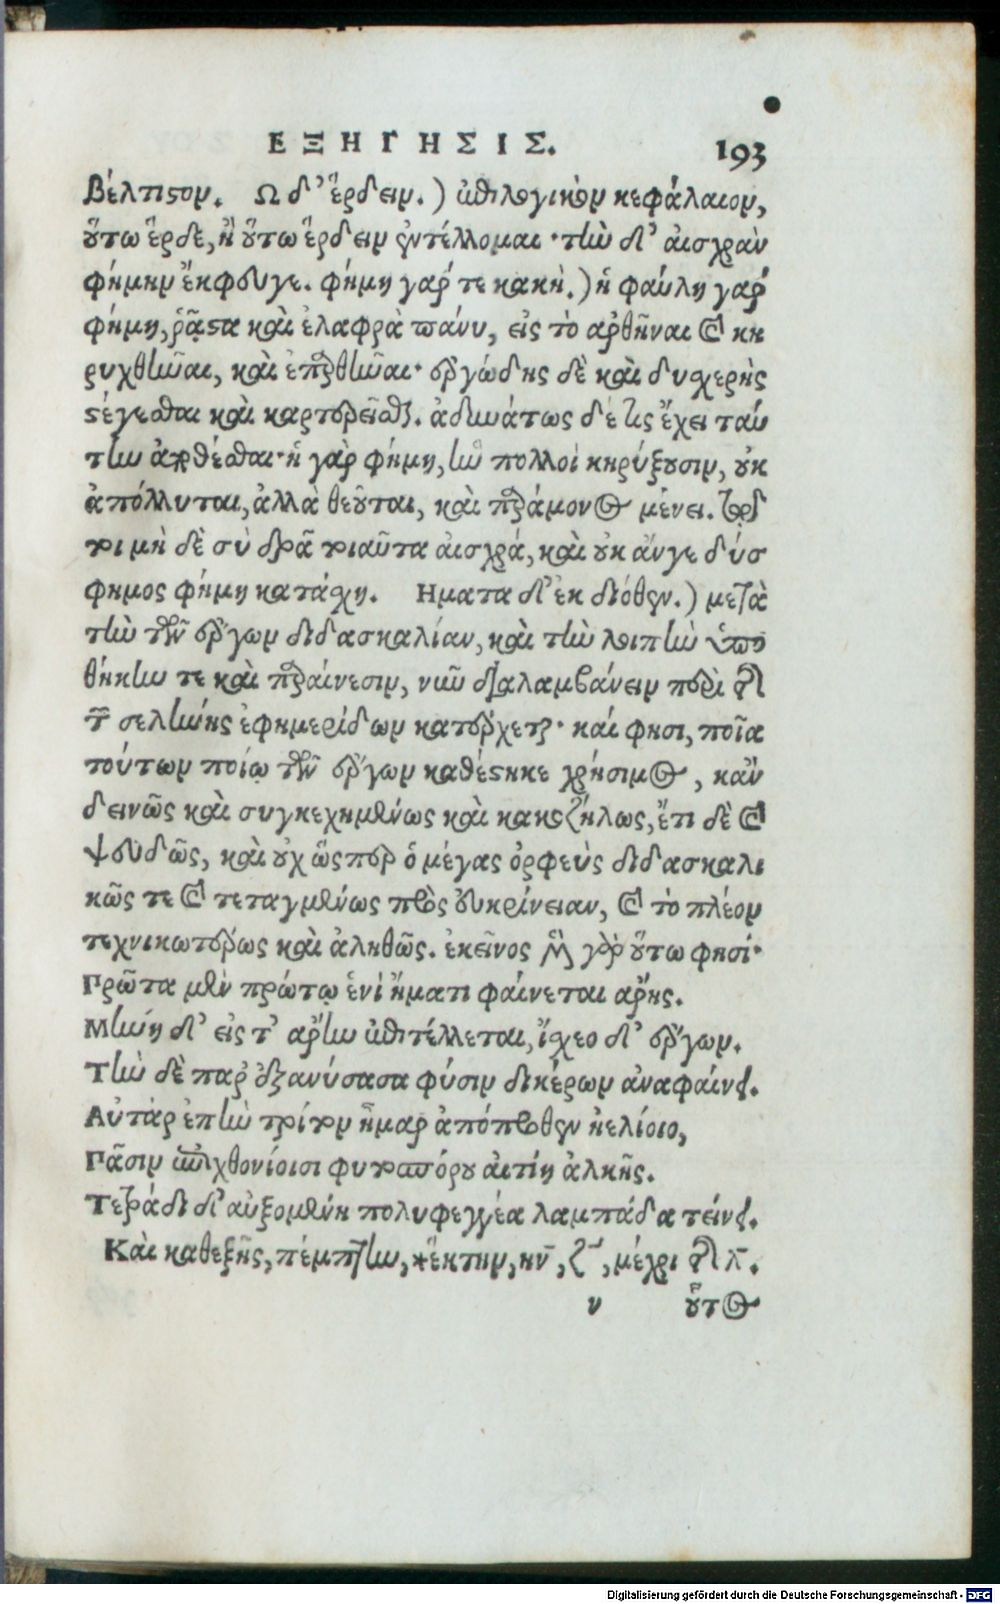 ΕΞΗΓΗΣΙΣ. 193
βέλτιςον. Ω δ' ἔρδειν.) ἐπιλογικὸν κεφάλαιον,
οὕτω ἔρδε, ἢ οὕτω ἔρδειν ἐντέλλομαι· τὴν δ' αἰσχρὰν
φήμην ἔκφευγε. φήμη γάρ τε κακὴ.) ἡ φαύλη γάρ
φήμη, ῥᾷςα καὶ ἐλαφρὰ πάνυ, εἰς τὸ ἀρθῆναι καὶ κη
ρυχθῆναι, καὶ ἐπαρθῆναι· ἐργώδης δὲ καὶ δυχερὴς
ςέγεσθαι καὶ καρτερεῖσθαι. ἀδυνάτως δέ τις ἔχει ταύ
την ἀποθέσθαι· ἡ γὰρ φήμη, ἣν πολλοὶ κηρύξουσιν, οὐκ
ἀπόλλυται, ἀλλὰ θεοῦται, καὶ παράμονος μένει.
τοι μὴ δὲ σὺ δρᾶ τοιαῦτα αἰσχρά, καὶ οὐκ ἄνγε δύσ
φημος φήμη κατάχη. Ηματα δ' ἐκ διόθεν.) μετὰ
τὴν τῶν ἔργων διδασκαλίαν, καὶ τὴν λοιπὴν ὑπο
θήκην τε καὶ παραίνεσιν, νῦν διαλαμβάνειν περὶ τῶν
τῆς σελήνης ἐφημερίδων κατέρχεται· καί φησι, ποῖα
τούτων ποίῳ τῶν ἔργων καθέςηκε χρήσιμος, κἂν
δεινῶς καὶ συγκεχημένως καὶ κακοζήλως, ἔτι δὲ καὶ
ψευδῶς, καὶ οὐχ ὥσπερ ὁ μέγας ὀρφεὺς διδασκαλι
κῶς τε καὶ τεταγμένως πρὸς εὐκρίνειαν, καὶ τὸ πλέον
τεχνικωτέρως καὶ ἀληθῶς. ἐκεῖνος μὲν γὰρ οὕτω φησί·
Πρῶτα μὲν πρώτῳ ἑνὶ ἤματι φαίνεται ἄρης.
Μήνη δ' εἰς τ' ἄρην ἐπιτέλλεται, ἴχεο δ' ἔργων.
Τὴν δὲ παρ ἐξανύσασα φύσιν δικέρων ἀναφαίνει.
Αὐτὰρ ἐπὴν τρίτον ἦμαρ ἀπόπροθεν ἠελίοιο,
Πᾶσιν ἐπιχθονίοισι φυτοσπόρου αἰτίη ἀλκῆς.
Τετράδι δ' αὐξομένη πολυφεγγέα λαμπάδα τείνει.
Καὶ καθεξῆς, πέμπτην, *ἕκτην, κν, ζ, μέχρι τῶν λ.
ν οὗτος
Digitalisierung gefördert durch die Deutsche Forschungsgemeinschaft - DFG